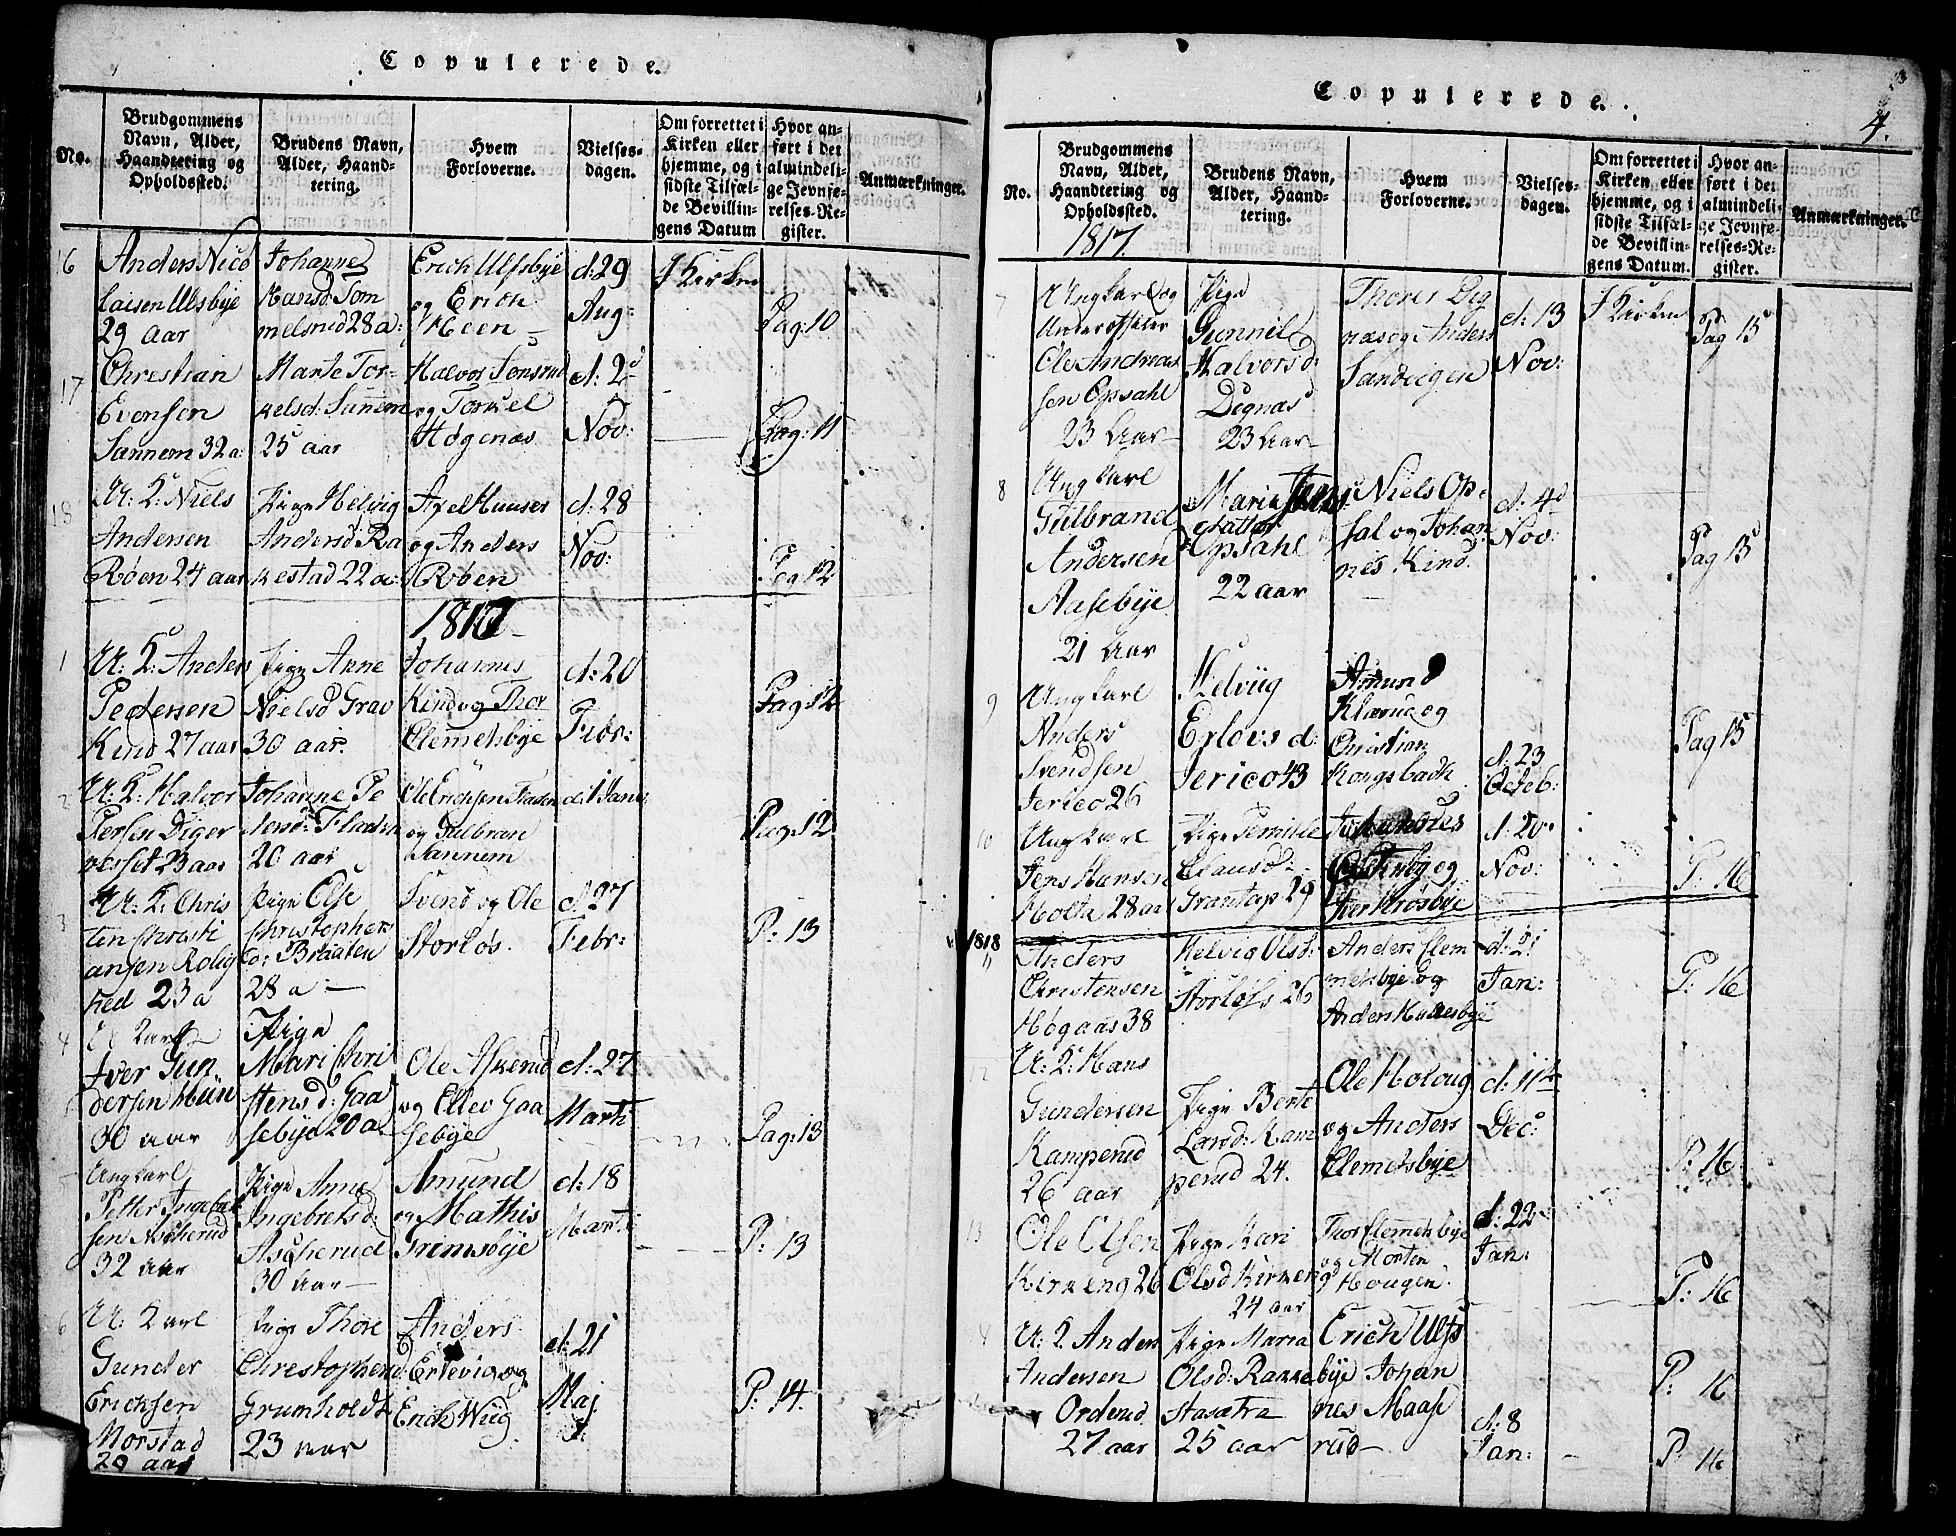 Copulerede.
No.
Brudgommens
Navn, Alder,
Haandtering og
Opholdssted.
Brudens Navn,
Alder, Haand-
tering.
Hvem
Forloverne.
Vielses-
dagen.
Om forrettet i
Kirken eller
hjemme, og i
sidste Tilfæl-
de Bevillin-
gens Datum
Hvor an-
ført i det
almindeli-
ge Jevnfø-
relses-Re-
gister.
Anmærkninger.
16
Anders Nico
laisen Ulsbye
29 aar
Johanne
Hansd: Tom
melsrud 28 a:
Erich Ulfsbye
og Erich
Heen
d: 29
Aug:
I Kirken
Pag: 10
17
Chrestian
Evensen
Sannem 32 a:
Marte Tor-
kelsd: Sannem
25 aar
Halvor Sonsrud
og Torkel
Høgenæs
d: 2d
Nov:
Pag: 11
18
U: K: Niels
Andersen
Røen 24 aar
Pige Helvig
Andersd Ra
kestad 22 a:
Axel Huuser
og Anders
Røen
d: 28
Nov:
Pag: 12
1817
1
U: K: Anders
Pedersen
Kind 27 aar
Pige Anne
Nielsd Grav
30 aar.
Johannes
Kind og Thor
Clemetsbye
d: 20
Febr:
Pag: 12
2
U: K: Halvor
Persen Diger
nesset 23 aar
Johanne Pe
20 aar
Ole Erichsen
og Gulbran
Sannem
d: 1 Janu
Pag: 12
3
U: K: Chris
ten Christi
ansen Rolig
hed 23 a
Pige Else
Christophers
d: Braaten
28 a
Svend og Ole
Storløs.
d 27
Febr:
P: 13
4
Iver Gun
dersen Huu
30 aar
Pige
Mari Chri
stensd: Gaa
sebye 20 a
Ole Askerud
og Ellev Gaa
sebye
d: 27
Marti
Pag: 13
Ungkarl
Petter Ingebret
sen Ascherud
32 aar
Pige Anne
Ingebretsd:
Ascherud
30 aar
Amund
og Mathis
Grimsbye
d: 18
Mart:
P: 13
6
U: Karl
Gunder
Erichsen
Morstad
29 aar
Pige Thore
Christophersd:
Grumholdt
23 aar
Anders
Ertevig og
Erich Wiig
d: 21
Maj
P: 14.
Copulerede.
4.
No.
Brudgommens
Navn, Alder,
Haandtering og
Opholdssted.
1817.
Brudens Navn,
Alder, Haand-
tering.
Hvem
Forloverne.
Vielses-
dagen.
Om forrettet i
Kirken eller
hjemme, og i
sidste Tilfæl-
de Bevillin-
gens Datum.
Hvor an-
ført i det
almindeli-
ge Jevnfø-
relses-Re-
gister.
Anmærkninger.
7
Ungkarl og
Underofficier
Ole Andreas
sen Opsahl
23 Aar
Pige
Gunnil
Halvorsd:
Degnæs
23 Aar
Thorer Deg
næs og Anders
Sandvigen
d: 13
Nov:
I Kirken
Pag 15
8
Ungkarl
Gulbrand
Andersen
Aasebye
21 Aar
Maria Jens
datter
Opsahl
22 aar
Niels Op-
sal og Johan
nes Kind.
d: 4d
Nov:
Pag 15
9
Ungkarl
Anders
Svendsen
Jerico 26
Helvig
Erlovs d:
Jerico 43
Amund
Klærue og
Christian
Kongsbach
d: 23
Octob:
Pag 15
10
Ungkarl
Jens Hansen
Holta 28 aar
Pige Pernille
Clausd:
Grantop 29
Iver Krosbye
d: 20
Nov:
P: 16
1818
11
Anders
Christensen
Høgaas 38
Helvig Olsd:
Storløfs 26
Anders Clem
metsbye og
Anders Hallesbye
d: 2
Jan:
P: 16
12
U: K: Hans
Gundersen
Kamperud
26 aar
Pige Berte
Larsd: Kam
perud 24.
Ole Holoug
og Anders
Clemetsbye
d: 11te
Dec:
P: 16
13
Ole Olsen
Kirkeng 26
Pige Kari
Olsd Kirkeng
24 aar
Thor Clemetsbye
og Morten
Hougen
d: 22
Jan:
P: 16
14
U: K. Anders
Andersen
Orderud
27 aar
Pige Maria
Olsd: Rakke
stasætra
25 aar
Erich Ulfs
bye Johan
nes Maase
rud
d: 8
Jan:
P: 16
P: 16